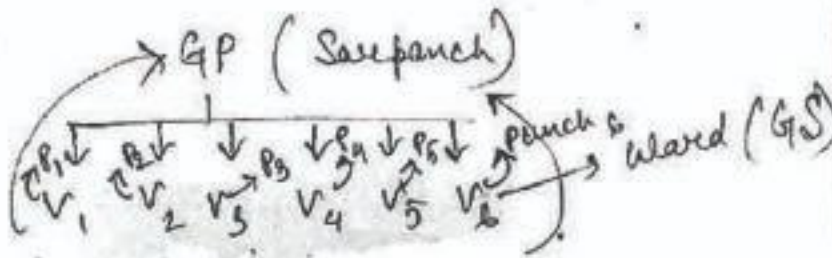 GP (Sarpanch)
P1 P2 P3 P4 P5 Panch 6
V1 V2 V3 V4 V5 V6 → Ward (GS)